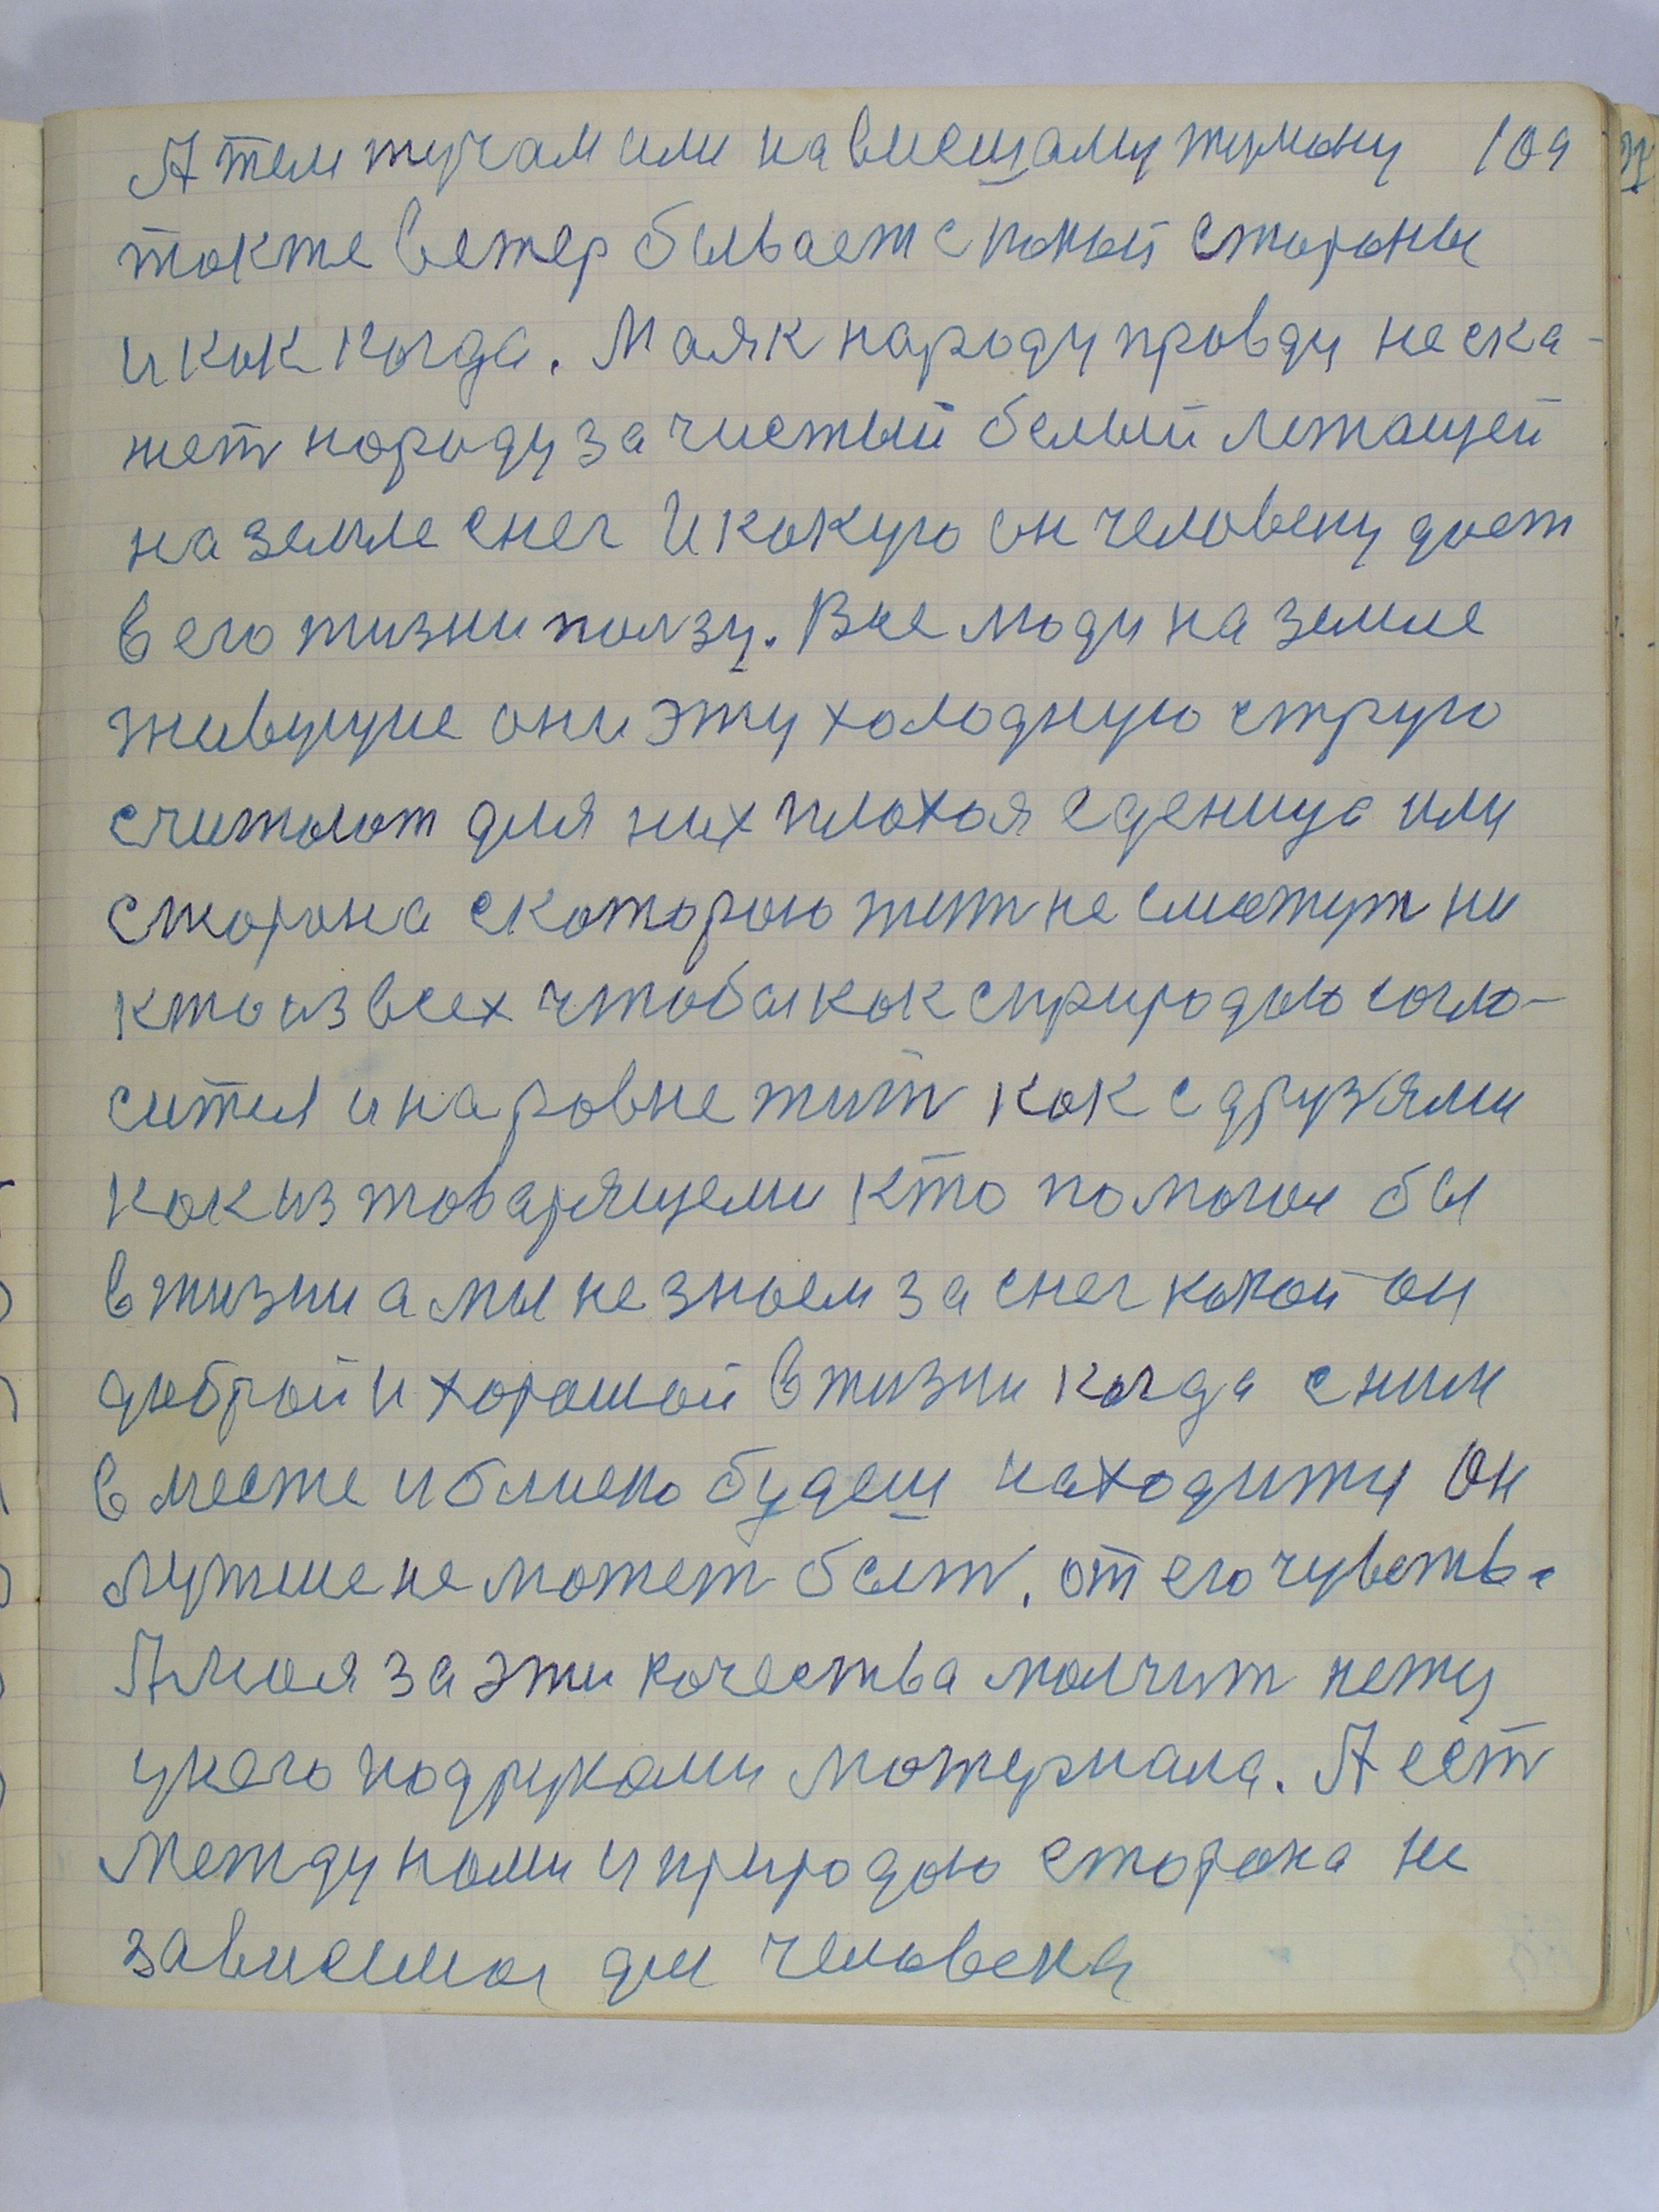 А тем тучам или нависщаму туману 109
также ветер бывает с какой стороны
и как когда. Маяк народу правду не ска-
жет народу за чистый белый лежащей
на земле снег И какую он человеку дает
в его жизни ползу. Все люди на земле
живущие они эту холодную струю
считают для них плохая еденица или
сторона с которою жит не сможут ни
кто из всех чтобы как с природою согла-
сится и на ровне жит как с друзями
как из товарящеми кто помогал бы
в жизни а мы не знаем за снег какой он
доброй и хорошой в жизни когда с ним
в месте и близко будеш находится Он
лутше не может быт. от его чувства
А моя за эти качества молчит нету
у него под руками матерриала. А ест
между нами и природаю сторона не
зависимая для человека